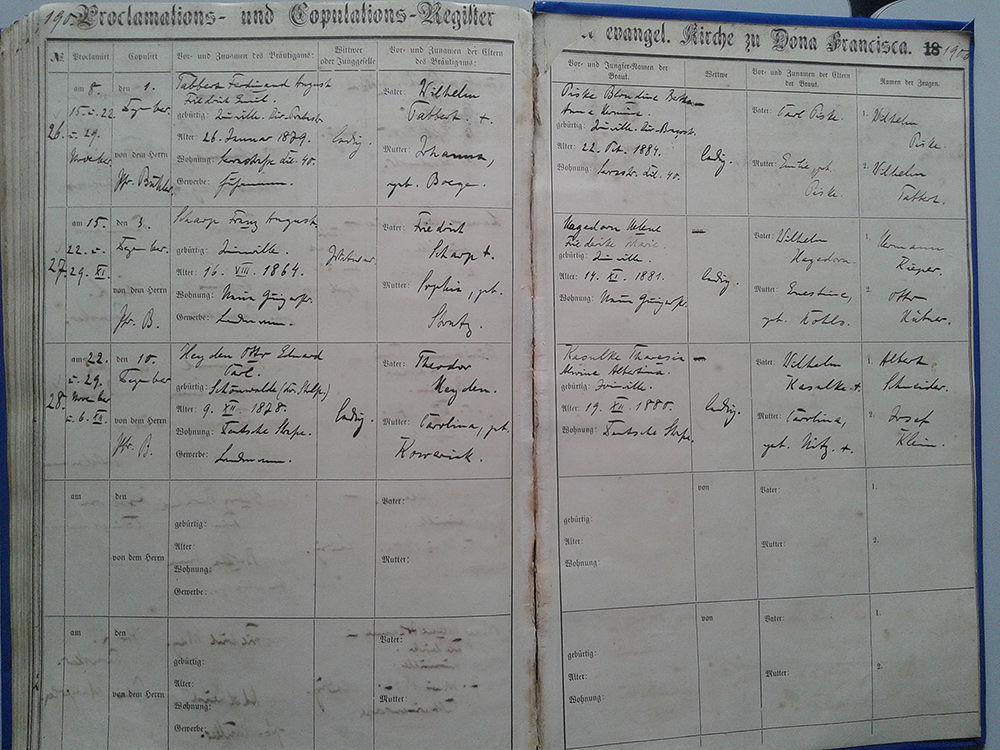 190
Proclamations- und Copulations-Register
№ Proclamirt Copulirt Vor- und Zunamen des Bräutigams: Wittwer oder Junggeselle Vor- und Zunamen der Eltern des Bräutigams:
26.
am 8.
15. u. 22.
u. 29.
November
den 1.
Dezember
von dem Herrn
Pfr. Bühler
Tabbert Ferdinand August
Friedrich Emil.
gebürtig: Joinville.
Alter: 26. Januar 1879.
Wohnung:
Gewerbe:
ledig.
Vater: Wilhelm
Tabbert. +.
Mutter: Johanna,
geb. Boege.
27.
am 15.
22. u.
29. XI.
den 3.
Dezember.
von dem Herrn
Pfr. B.
Scharp Franz August
gebürtig: Joinville.
Alter: 16. VIII. 1864.
Wohnung: Neue
Gewerbe: Landmann.
Wittwer.
Vater: Friedrich
Scharp +
Mutter: Sophia, geb.
28.
am 22.
u. 29.
November
u. 6. XII.
den 10.
Dezember
von dem Herrn
Pfr. B.
Heyden Otto Eduard
Carl.
gebürtig: Schönwalde (Kr. Stolpe)
Alter: 9. XII. 1878.
Wohnung: Deutsche Straße.
Gewerbe: Landmann.
ledig.
Vater: Theodor
Heyden.
Mutter: Carolina, geb.
Kowarick.
am den Vater:
gebürtig:
Alter:
von dem Herrn Mutter:
Wohnung:
Gewerbe:
am den Vater:
gebürtig:
Alter:
von dem Herrn Mutter:
Wohnung:
Gewerbe:
evangel. Kirche zu Dona Francisca. 18 1903
Vor- und Jungfer-Namen der Braut. Wittwe Vor- und Zunamen der Eltern der Braut: Namen der Zeugen.
Piske Blondine Bertha
Anna
gebürtig: Joinville.
Alter: 22. Okt. 1884.
Wohnung:
ledig.
Vater: Carl Piske.
Mutter: Emilie geb.
Piske.
1. Wilhelm
Piske.
2. Wilhelm
Tabbert.
Hagedorn Helene
Friederike Marie
gebürtig: Joinville.
Alter: 14. XI. 1881.
Wohnung: Neue
ledig.
Vater: Wilhelm
Hagedorn.
Mutter: Ernestine,
geb. Kohls.
1. Hermann
Küper.
2. Otto
Hübner.
Kasulke Theresia
Alwine Albertina.
gebürtig: Joinville.
Alter: 19. XII. 1880.
Wohnung: Deutsche Straße.
ledig.
Vater: Wilhelm
Kasulke +.
Mutter: Carolina,
geb. Nitz. +.
1. Albert
Schneider.
2. Josef
Klein.
von Vater: 1.
gebürtig:
Alter: Mutter: 2.
Wohnung:
von Vater: 1.
gebürtig:
Alter: Mutter: 2.
Wohnung: